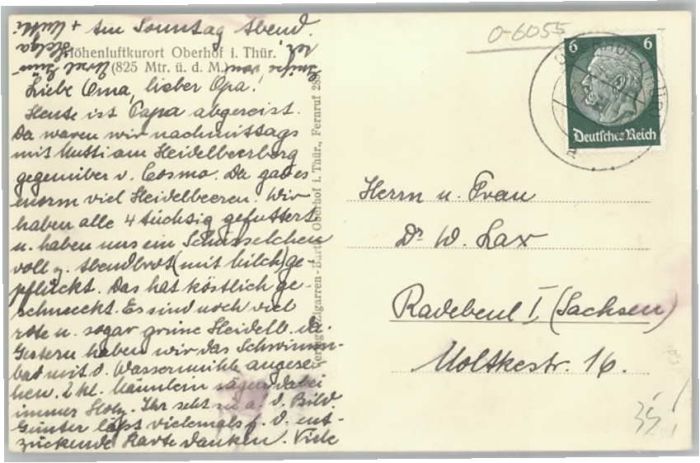 Am Sonntag Abend.
Höhenluftkurort Oberhof i. Thür.
(825 Mtr. ü. d. M.)
Liebe Oma, lieber Opa!
Heute ist Papa abgereist.
Da waren wir nachmittags
mit Mutti am Heidelbeerberg
gegenüber v. Cosmo. Da gab es
enorm viel Heidelbeeren. Wir
haben alle 4 tüchtig gefuttert
u. haben uns ein Schüsselchen
voll z. Abendbrot (mit Milch) ge-
pflückt. Das hat köstlich ge-
schmeckt. Es sind noch viel
rote u. sogar grüne Heidelb. da.
Gestern haben wir das Schwimm-
bad mit d. Wassermühle angeseh
hen. 2 kl. Männlein sägen dabei
immer Holz. Ihr seht sie a. d. Bild
Günter läßt vielemals f. d. ent-
zückende Karte danken. Viele
Oberhof i. Thür., Fernruf
0-6055
6 6
Deutsches Reich
Herrn u. Frau
Dr W. Lax
Radebeul I (Sachsen)
Moltkestr. 16.
35,-